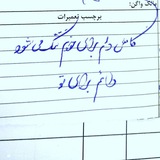 مالک واگن:
برچسب تعمیرات
گاهی دلم برای خودم تنگ می شود
دلم برای تو